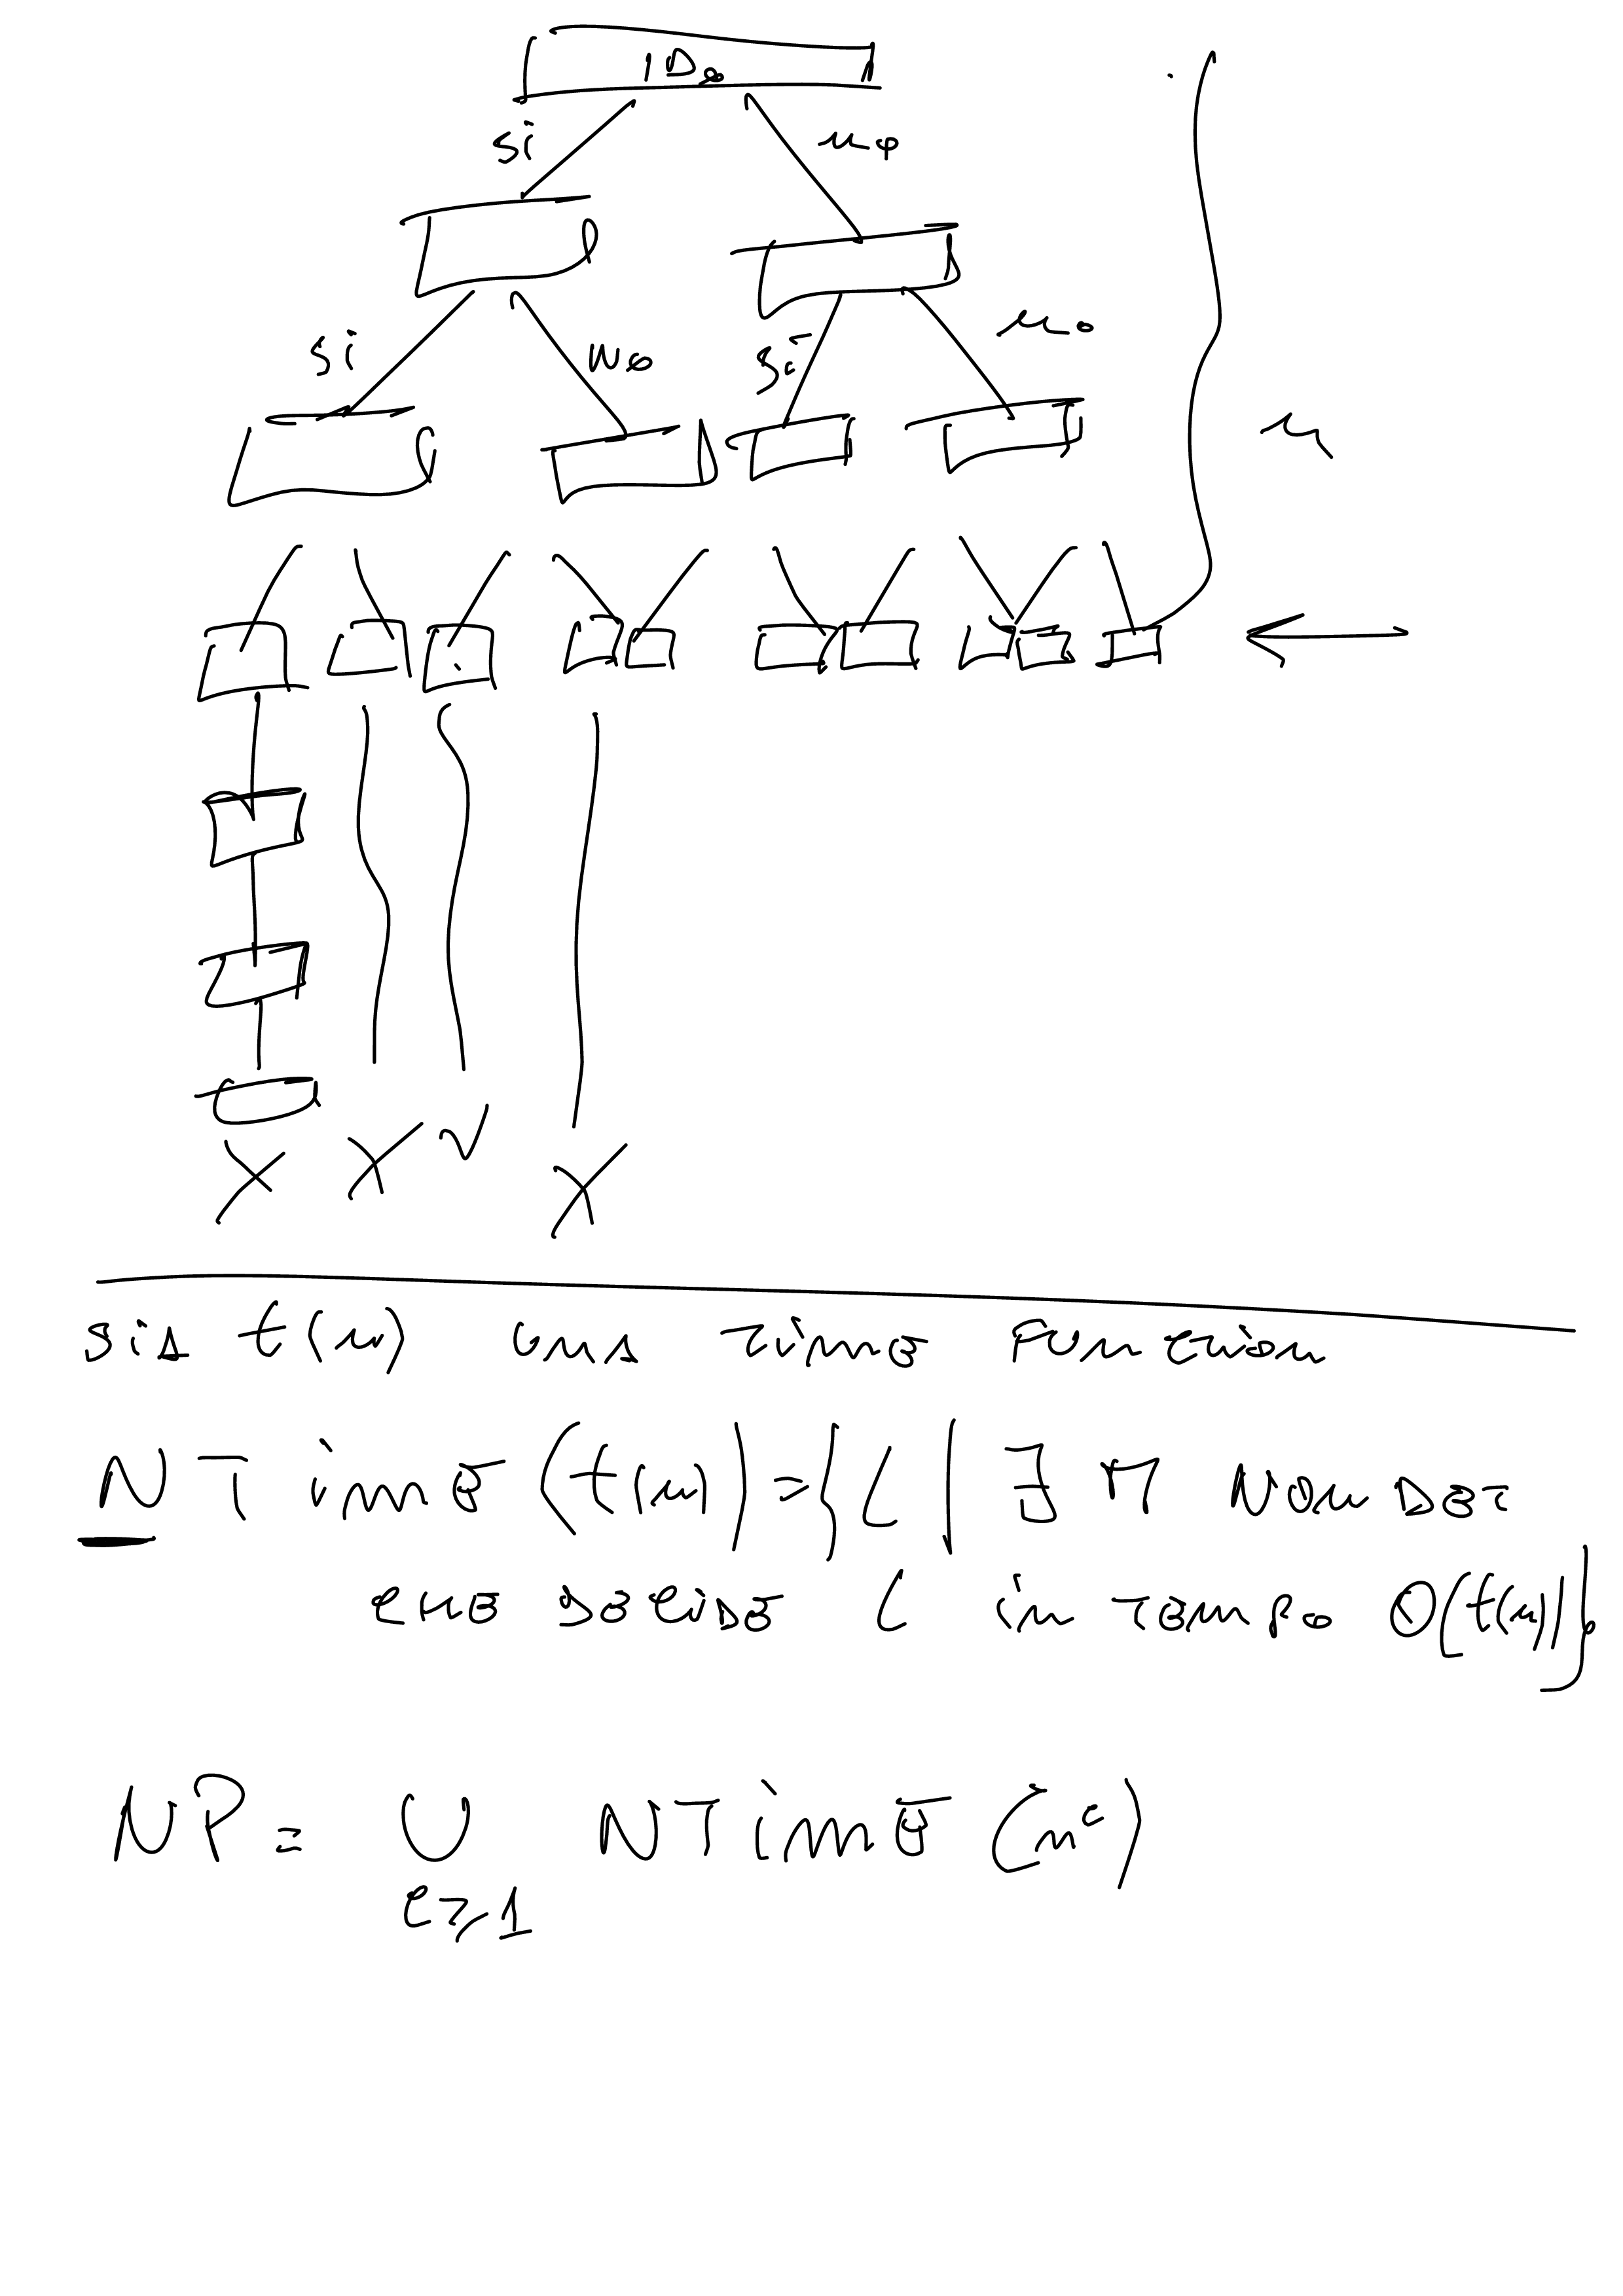 ID₀
si no
si no si no
n
sia t(n) una time function
NTime(t(n)) = {L | ∃ M Non Det
che decide L in tempo O(t(n))}
NP = ∪ NTime(n^c)
c≥1